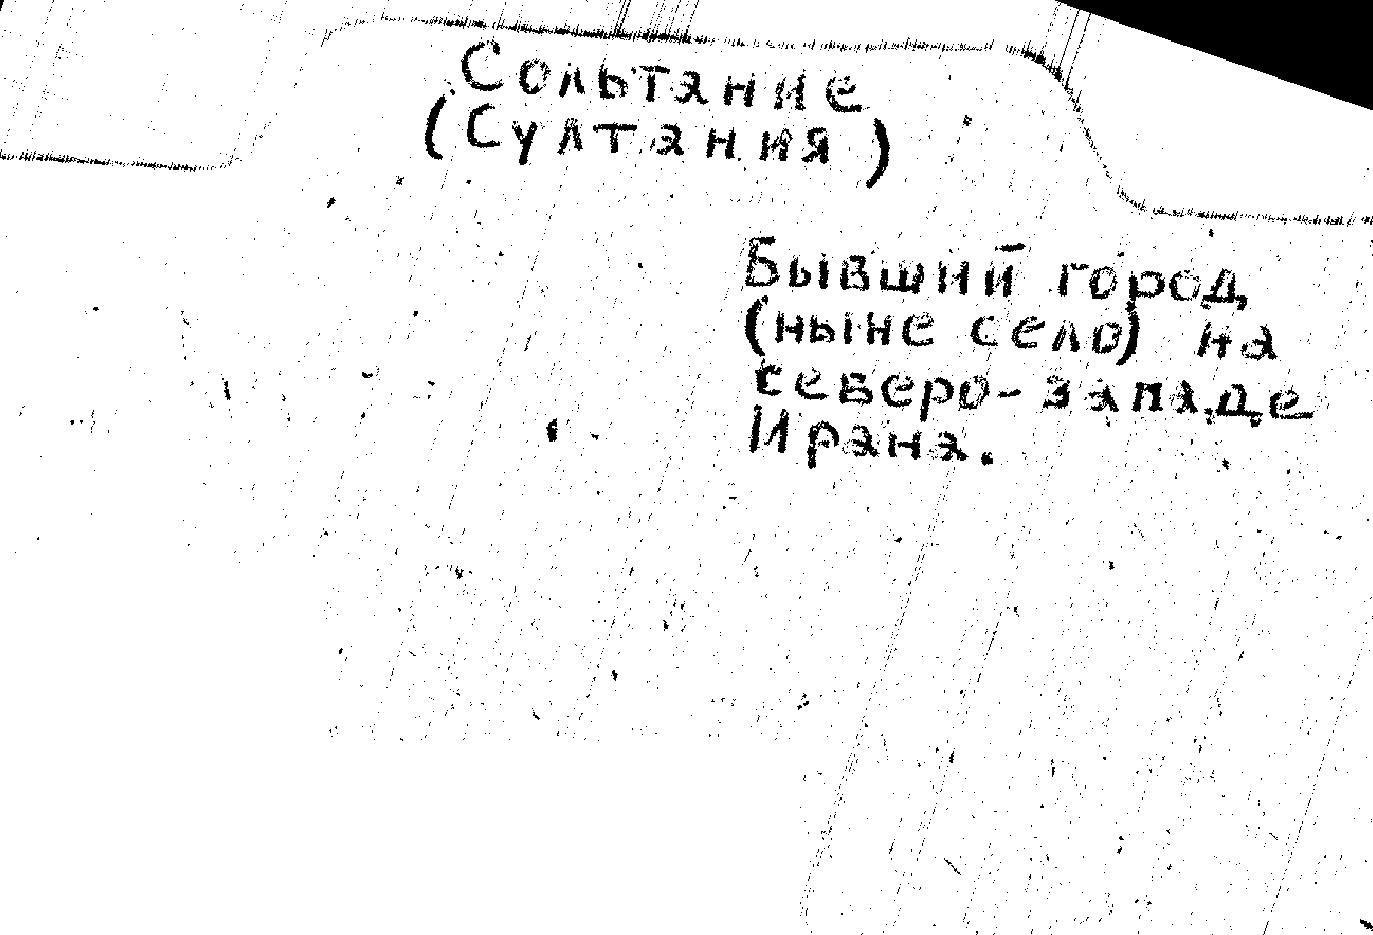 Сольтание
(Султания)
Бывший город
(ныне село) на
северо-западе
Ирана.